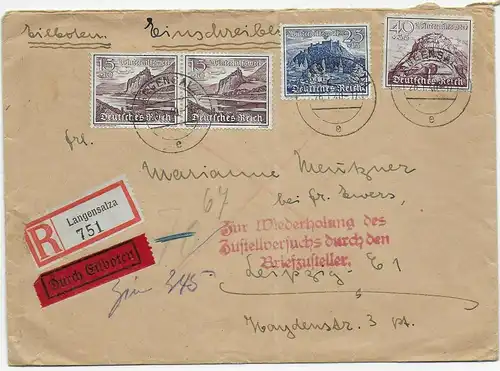 Eilboten. Einschreiben
15 Winterhilfswerk Deutsches Reich
15 Winterhilfswerk Deutsches Reich
25 Winterhilfswerk Deutsches Reich
40 Winterhilfswerk Deutsches Reich
e
e
e
Frl.
Marianne Meutzner
bei Fr. Ewers,
67
R Langensalza
751
Durch Eilboten
Zur Wiederholung des
Zustellversuchs durch den
Briefzusteller.
Leipzig C 1
345
Haydnstr. 3 pt.